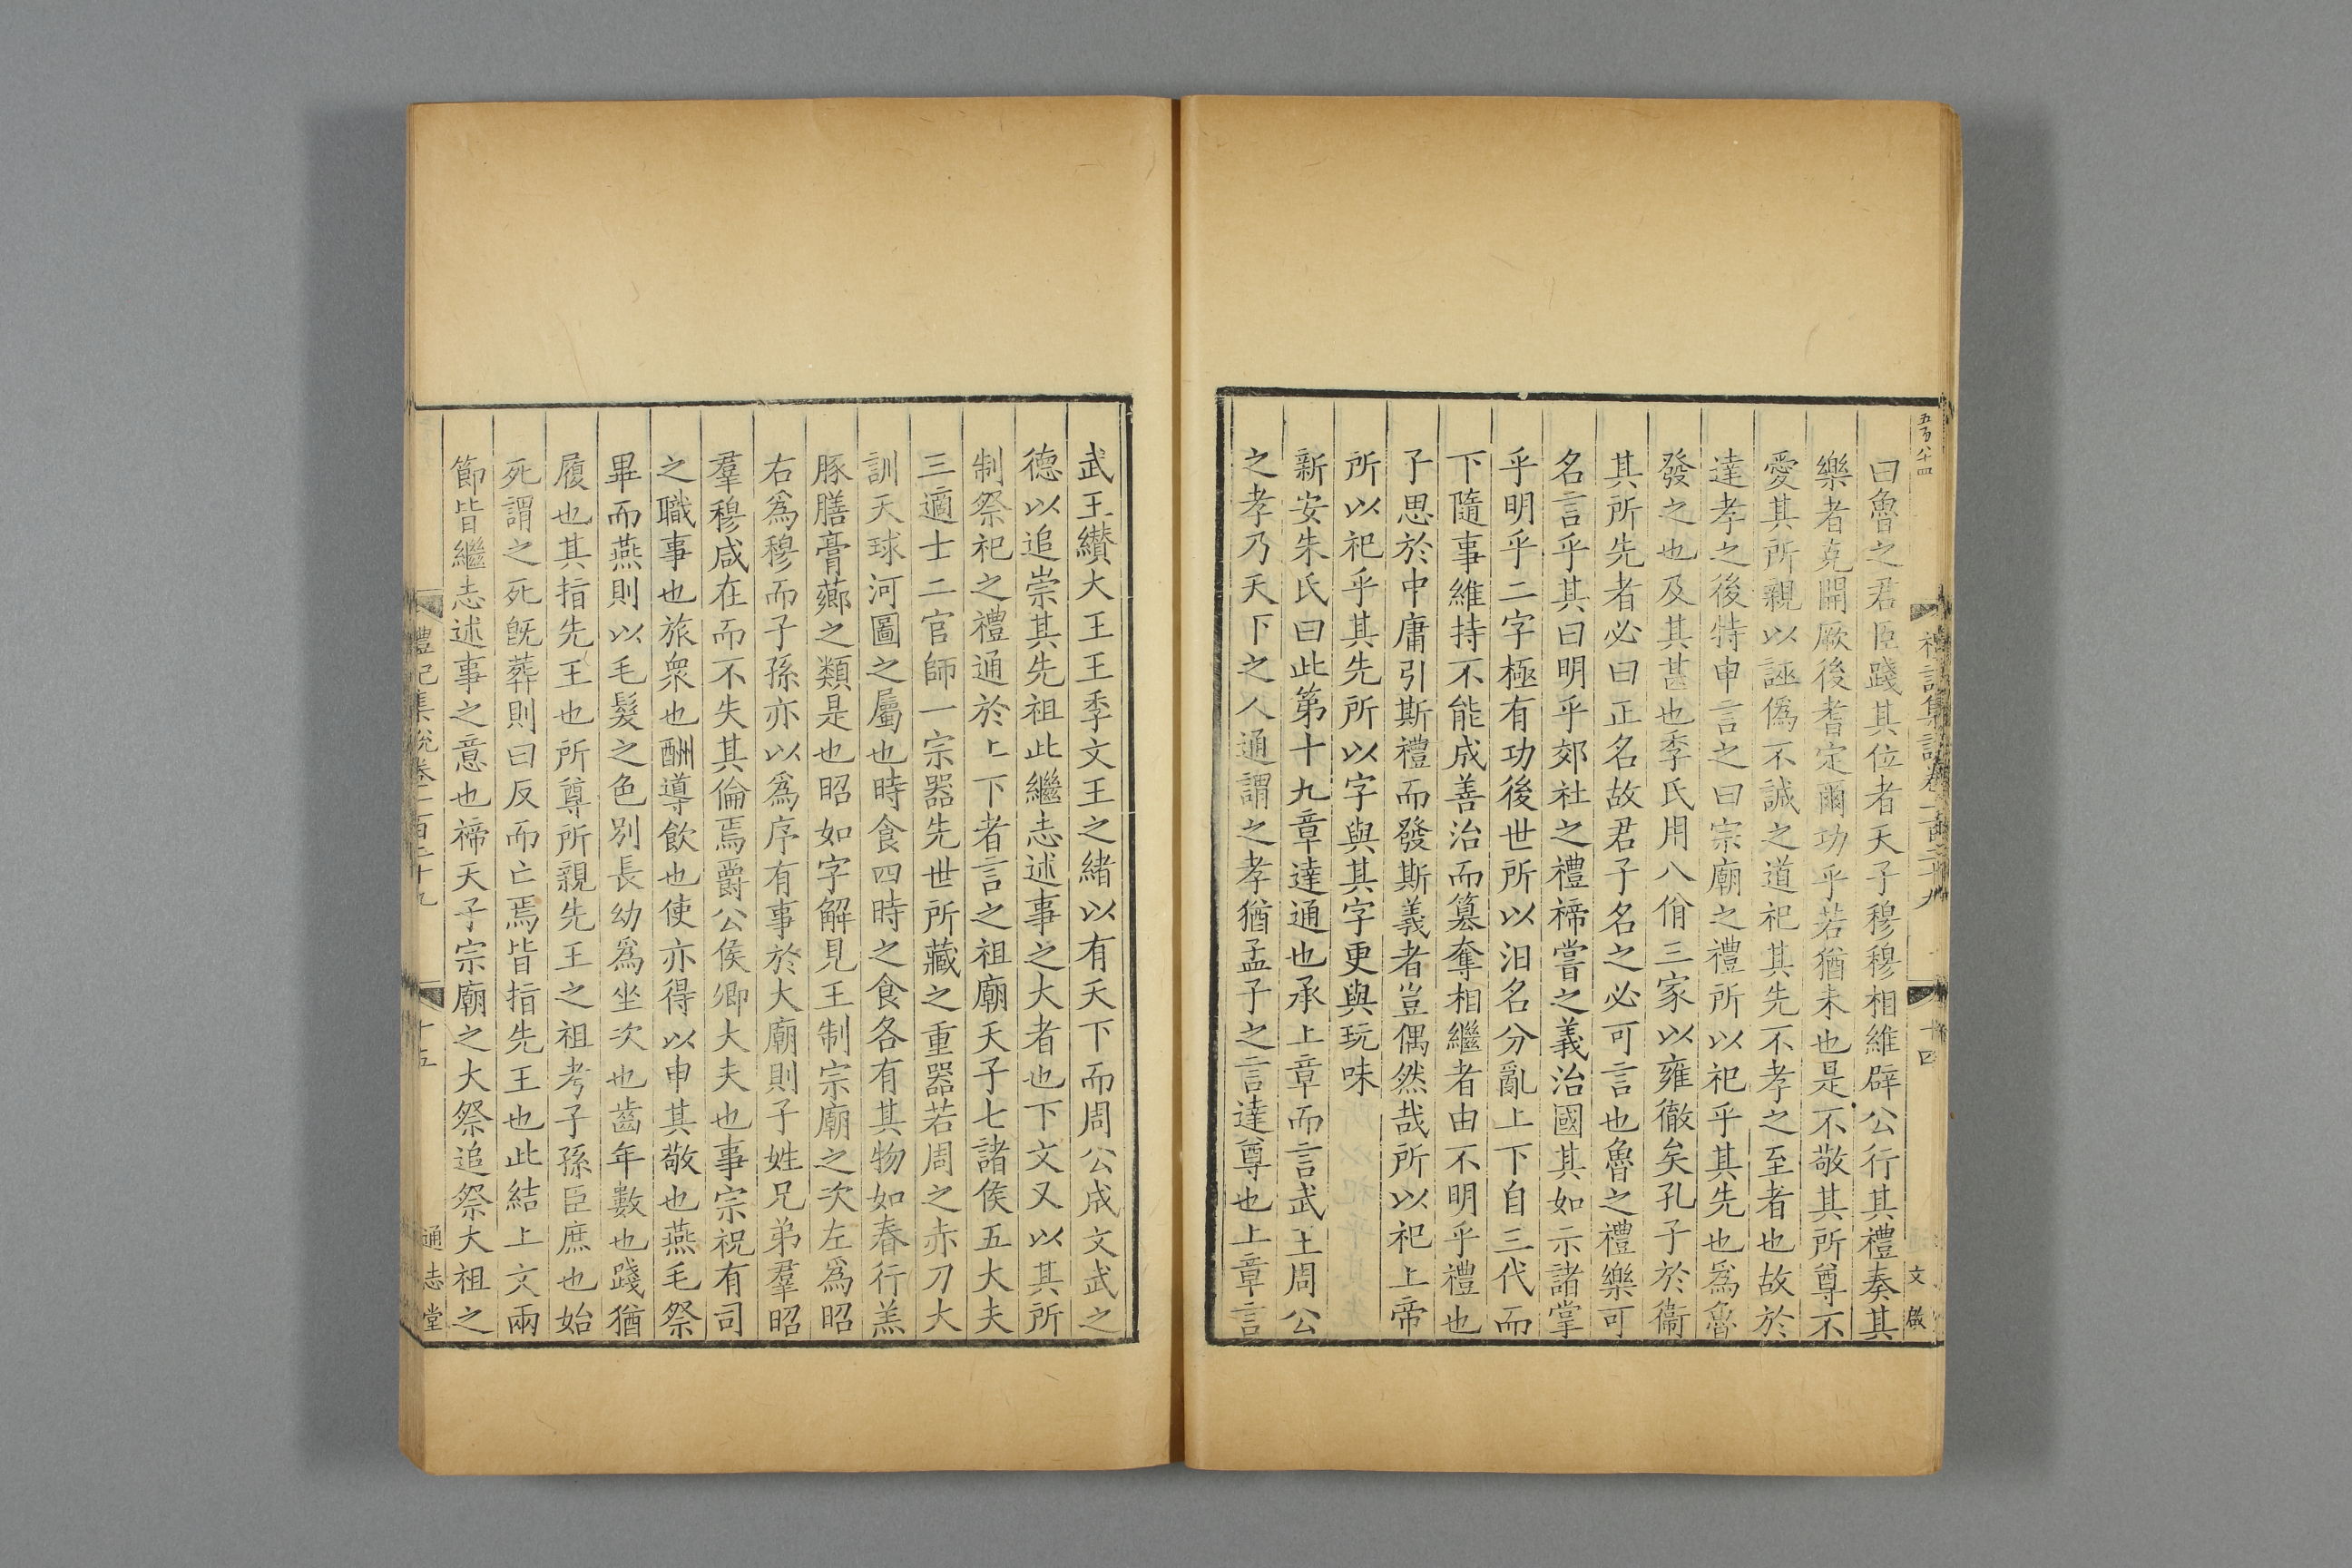 五百八十四
禮記集說卷一百二十九
十四
文啟
曰魯之君臣踐其位者天子穆穆相維辟公行其禮奏其
樂者克開厥後耆定爾功乎若猶未也是不敬其所尊不
愛其所親以誣僞不誠之道祀其先不孝之至者也故於
達孝之後特申言之曰宗廟之禮所以祀乎其先也爲魯
發之也及其甚也季氏用八佾三家以雍徹矣孔子於衞
其所先者必曰正名故君子名之必可言也魯之禮樂可
名言乎其曰明乎郊社之禮禘嘗之義治國其如示諸掌
乎明乎二字極有功後世所以汨名分亂上下自三代而
下隨事維持不能成善治而篡奪相繼者由不明乎禮也
子思於中庸引斯禮而發斯義者豈偶然哉所以祀上帝
所以祀乎其先所以字與其字更與玩味
新安朱氏曰此第十九章達通也承上章而言武王周公
之孝乃天下之人通謂之孝猶孟子之言達尊也上章言
武王纘大王王季文王之緒以有天下而周公成文武之
德以追崇其先祖此繼志述事之大者也下文又以其所
制祭祀之禮通於上下者言之祖廟天子七諸侯五大夫
三適士二官師一宗器先世所藏之重器若周之赤刀大
訓天球河圖之屬也時食四時之食各有其物如春行羔
豚膳膏薌之類是也昭如字解見王制宗廟之次左爲昭
右爲穆而子孫亦以爲序有事於大廟則子姓兄弟羣昭
羣穆咸在而不失其倫焉爵公侯卿大夫也事宗祝有司
之職事也旅衆也酬導飲也使亦得以申其敬也燕毛祭
畢而燕則以毛髮之色别長幼爲坐次也齒年數也踐猶
履也其指先王也所尊所親先王之祖考子孫臣庶也始
死謂之死旣葬則曰反而亡焉皆指先王也此結上文兩
節皆繼志述事之意也禘天子宗廟之大祭追祭大祖之
禮記集說卷一百二十九
十五
通志堂